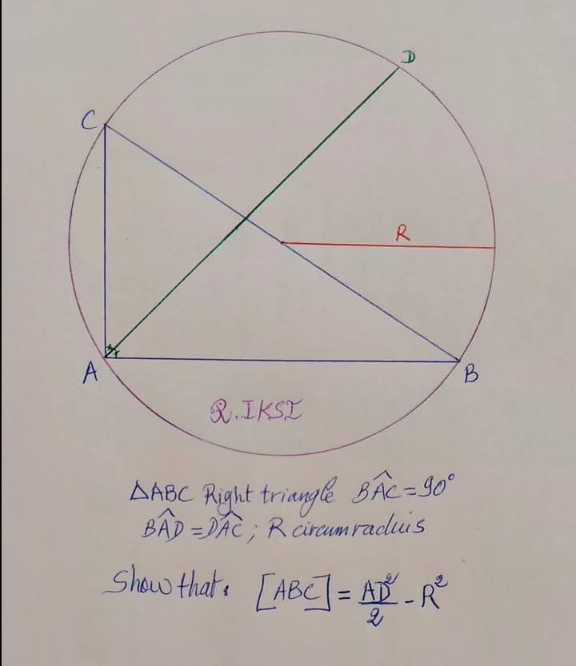 D
C
R
A
B
R.IKSI
△ABC Right triangle BÂC = 90°
BÂD = DÂC ; R circumradius
Show that: [ABC] = AD²/2 - R²